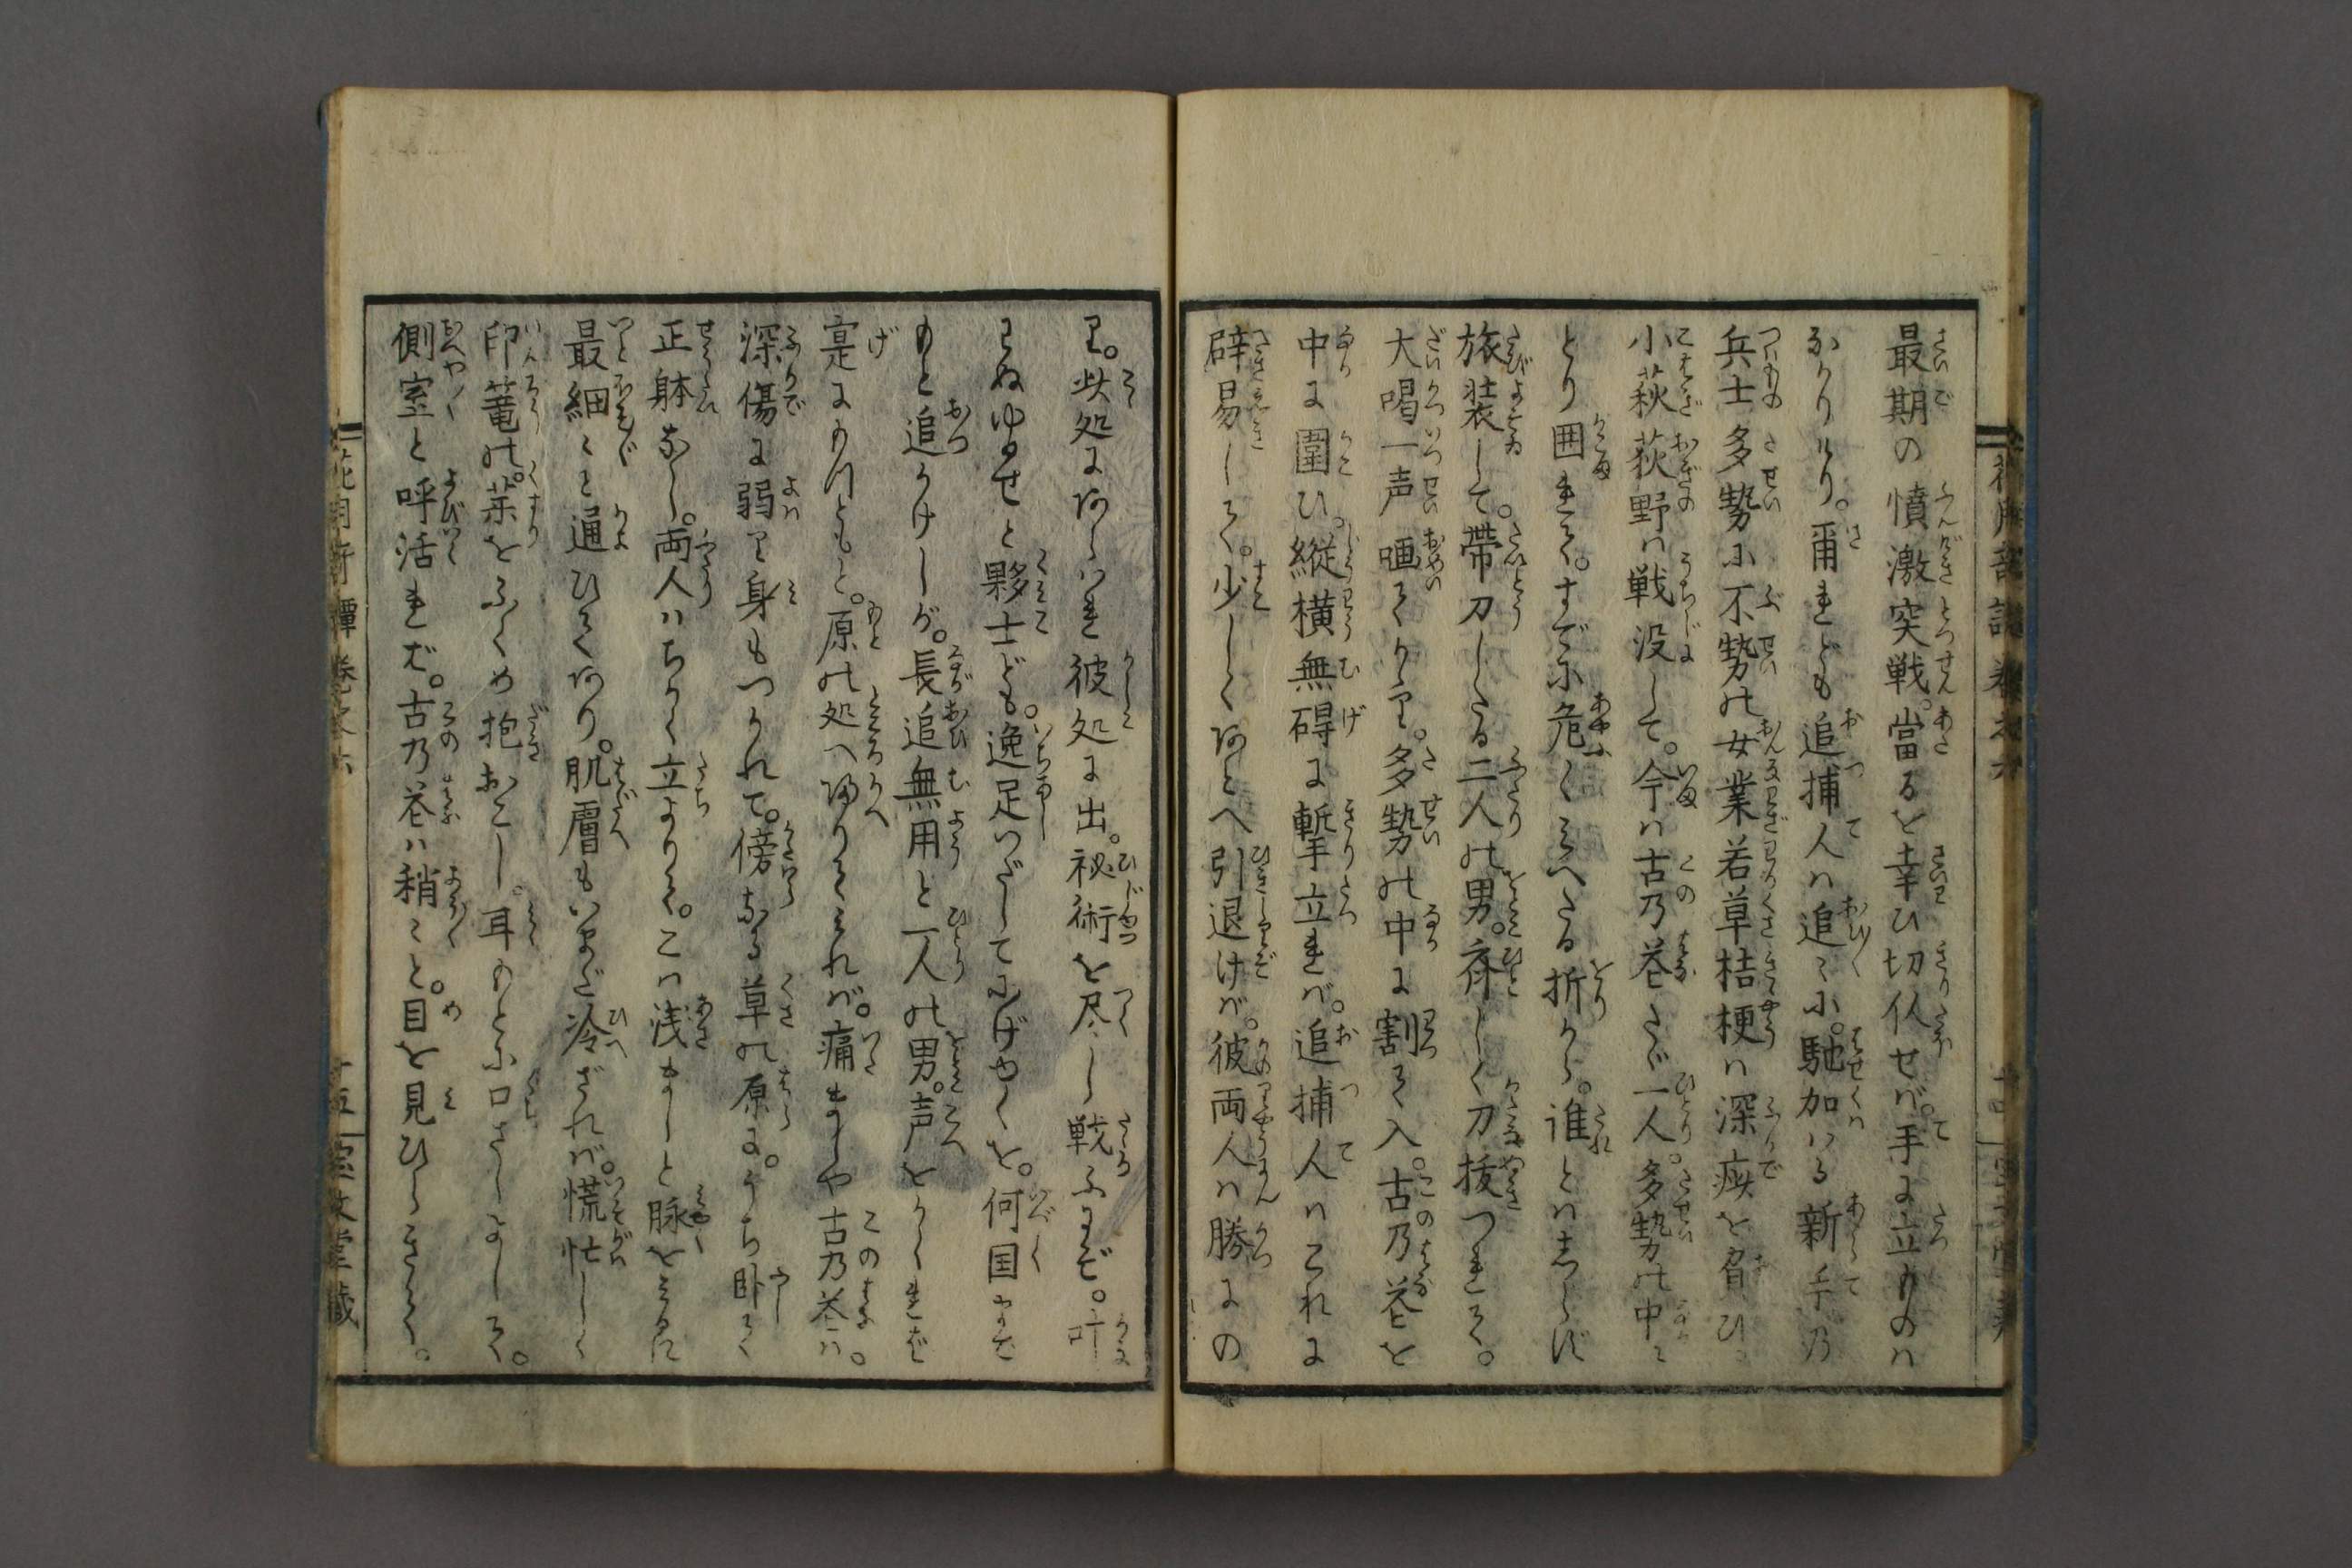 最期の憤激突戦。當るを幸ひ切仆せば。手に立ものハ
なかりけり。爾れども追捕人ハ追々に。馳加はる新手乃
兵士多勢に不勢の女業若草桔梗ハ深痍を負ひ。
小萩荻野ハ戦没して。今ハ古乃花たゞ一人。多勢の中に
とり囲まれて。すでに危くみへたる折から。誰とハしらず
旅装して。帯刀したる二人の男。斉しく刀抜つれて。
大喝一声喚てかゝり。多勢の中に割て入。古乃花を
中に圍ひ。縦横無碍に撃立れバ。追捕人ハこれに
辟易して。少しくあとへ引退けバ。彼両人ハ勝にの
り。此処にあらハれ彼処に出。秘術を尽し戦ふにぞ。叶
ハぬゆるせと夥士ども。逸足いだしてにげゆくを。何国まで
もと追かけしが。長追無用と一人の男。声をかくれば
寔にもつともと。原の処へ帰りて見れバ。痛ましや古乃花ハ。
深傷に弱り身もつかれて。傍なる草の原に。うち臥て
正躰なし。両人ハちかく立よりて。こハ浅ましと脉をみるに
最細々と通ひてあり。肌膚もいまだ冷ざれバ。慌忙しく
印篭の。薬をふくめ抱おこし。耳のもとに口さしよして。
側室と呼活れば。古乃花ハ稍々と。目を見ひらきて。
十五 宝文堂蔵